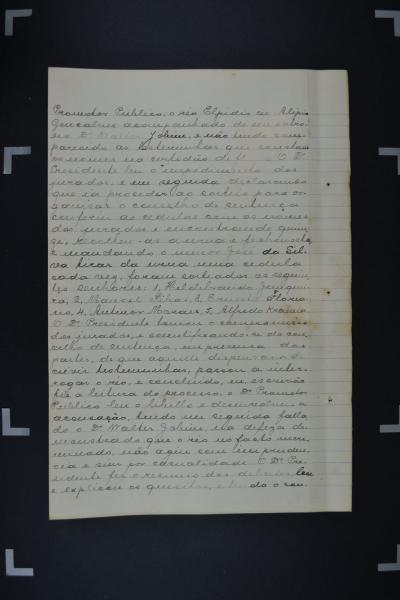 Promotor Publico, o réo Elpidio de Alipio
Gonçalves acompanhado de seu patro-
no Dr Walter Jobim, e não tendo com-
parecido as testemunhas que constam
os nomes na certidão de O Dr
Presidente leu o impedimento dos
jurados, e em seguida declarando
que ia proceder ao sorteio para or-
ganisar o conselho de sentença
conferiu as cedulas com os nomes
dos jurados e encontrando quin-
ze, recolheu-as a urna e fechando-a,
e mandando o menor José da Sil-
va tirar da urna uma cedula
cada vez, foram sorteados os seguin-
tes senhores: 1, Hildebrando Junquei-
ra, 2, Manoel Filho, 3, Ernesto Floria-
no, 4, Antenor Moraes, 5, Alfredo
O Dr Presidente tomou o compromisso
dos jurados, e scientificando-se do con-
selho de sentença, em presença das
partes, de que aquelle dispensava de
ouvir testemunhas, passou a inter-
rogar o réo, e concluido, eu escrivão
fiz a leitura do processo. O Dr Promotor
Publico leu o libello e desenvolveu a
accusação, tendo em seguida falla-
do o Dr Walter Jobim, na defeza de-
monstrando que o réo no facto incri-
minado, não agiu com imprudencia
cia e sim por casualidade. O Dr Pre-
sidente fez o resumo dos debates leu
e explicou os quesitos, e tendo o con-